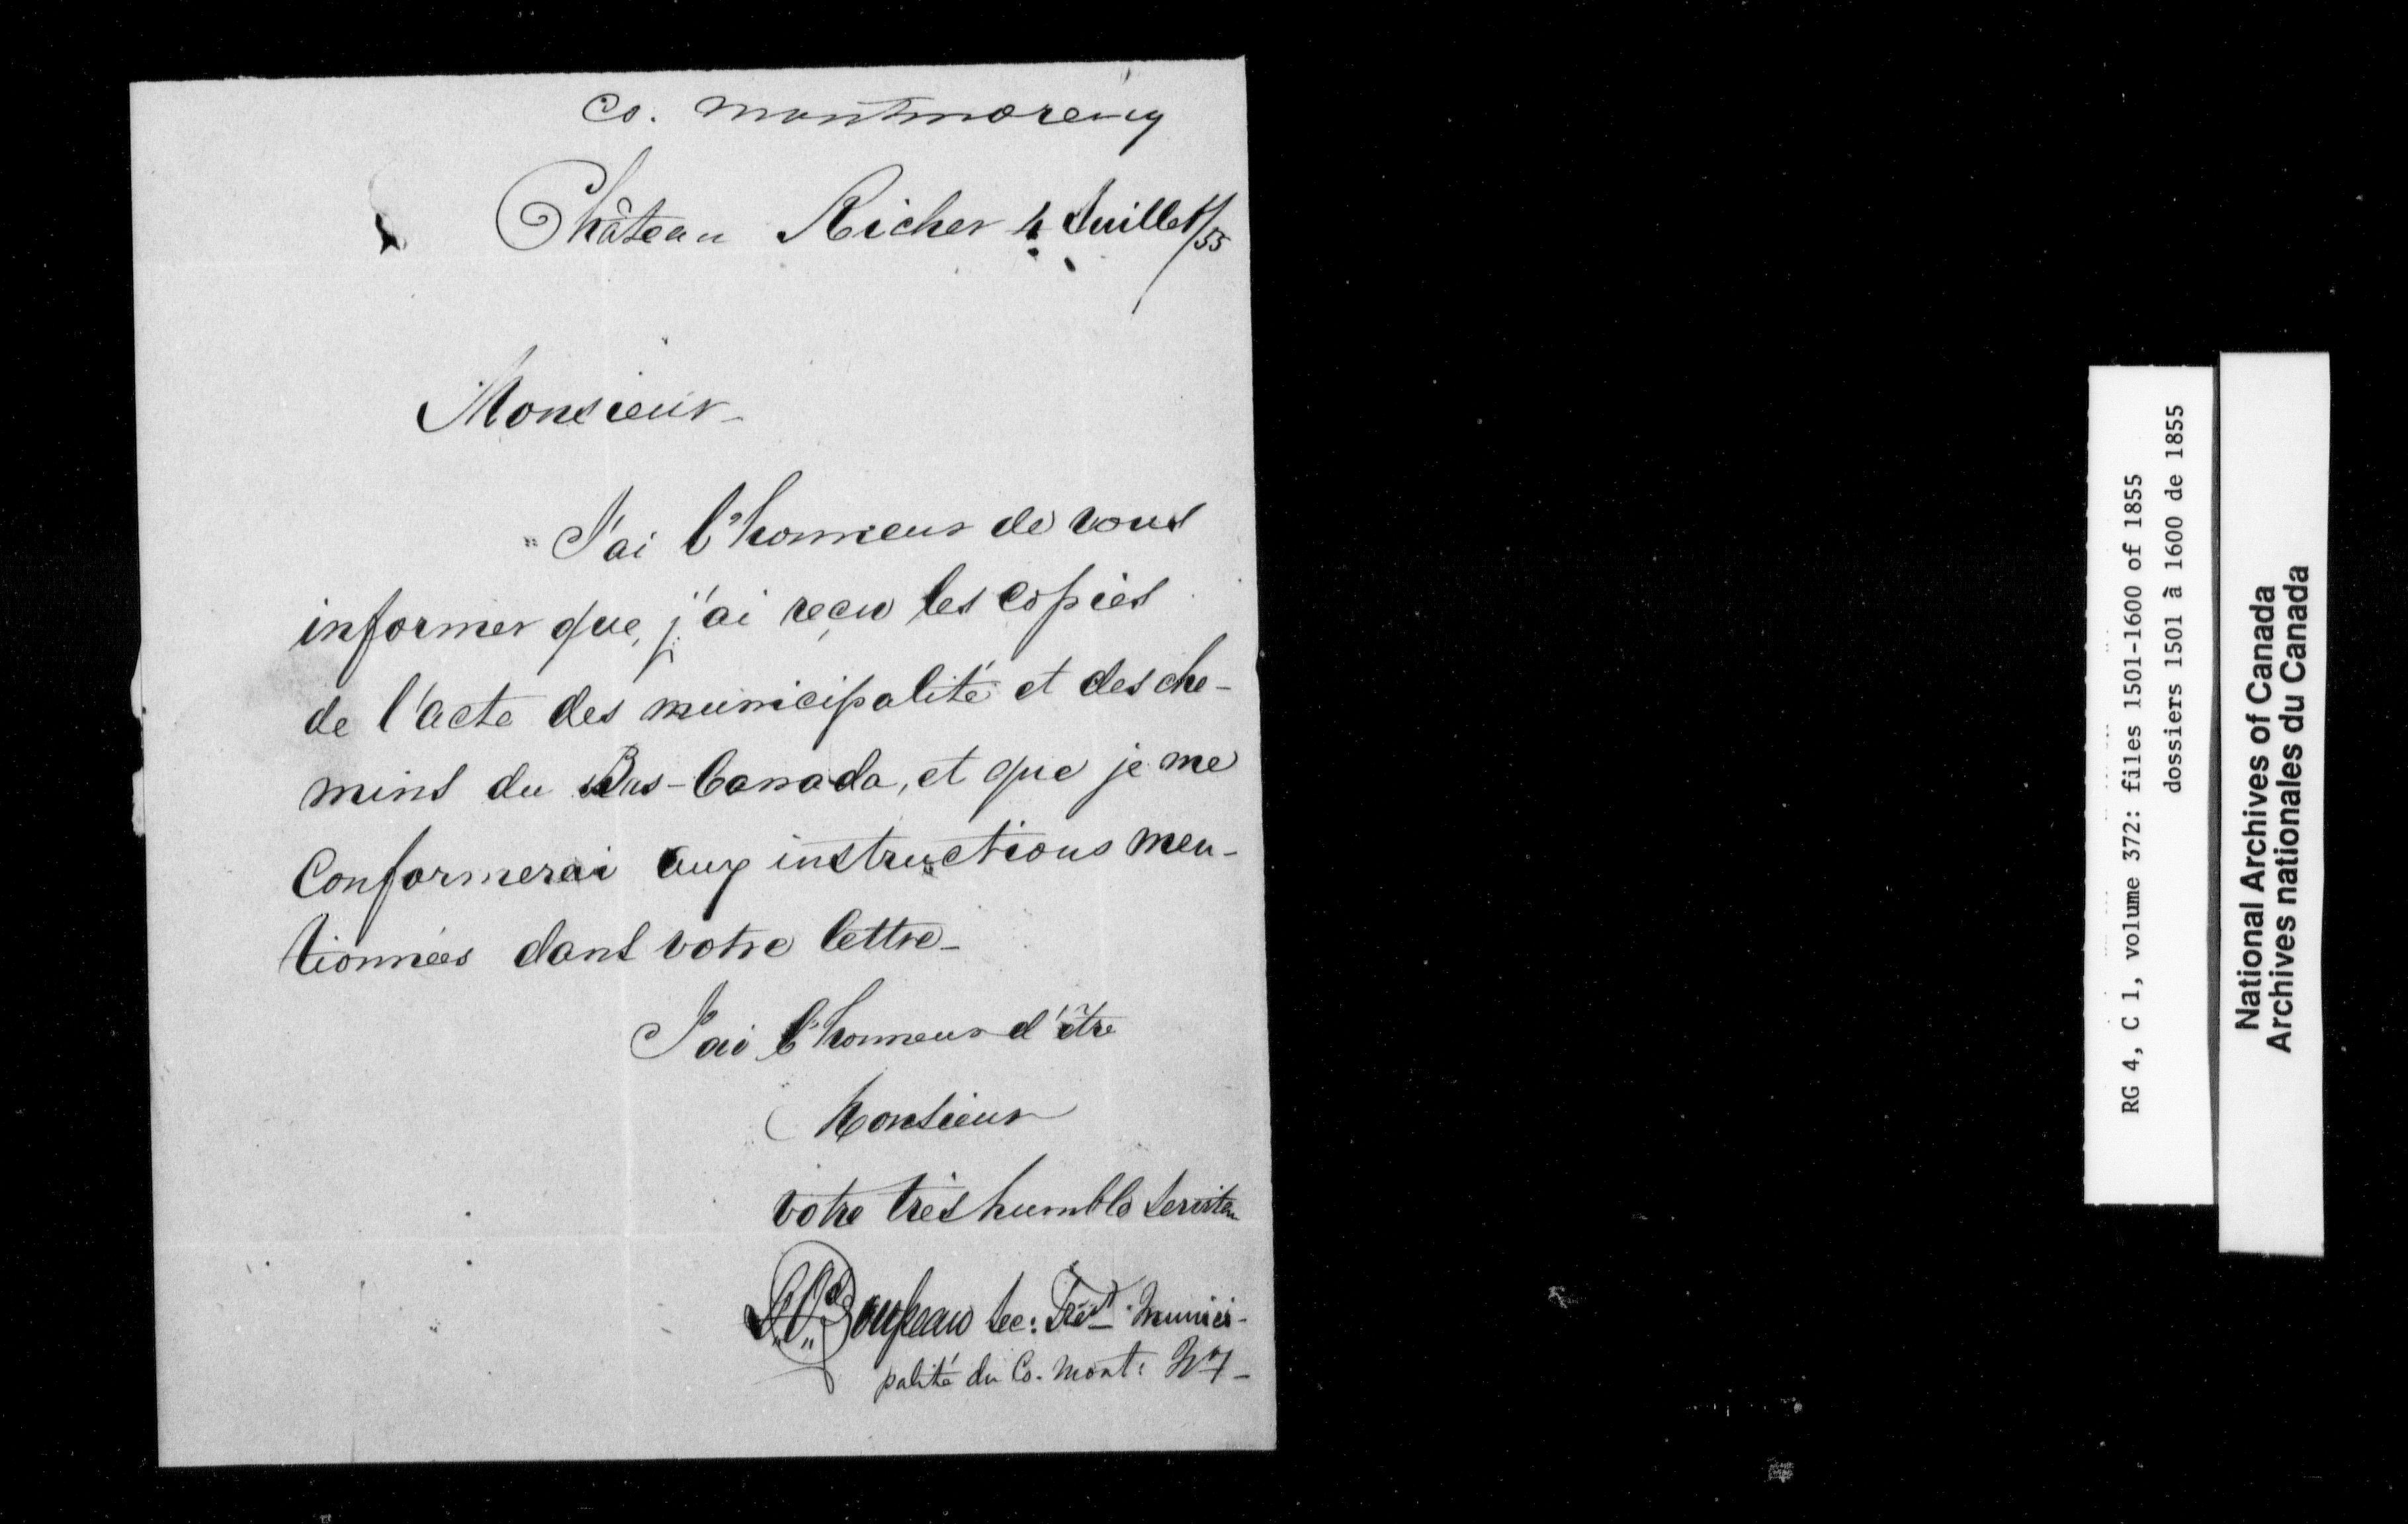 Co. Montmorency
Château Richer 4 Juillet/55
Monsieur
J'ai l'honneur de vous
informer que j'ai reçu les copies
de l'acte des municipalité et des che-
mins du Bas-Canada, et que je me
Conformerai aux instructions men-
tionnées dans votre lettre_
J'ai l'honneur d'être
Monsieur
votre très humble Serviteu
Sec: Trés. Munici-
palité du Co. Mont:
RG 4, C 1, volume 372: files 1501-1600 of 1855
dossiers 1501 à 1600 de 1855
National Archives of Canada
Archives nationales du Canada